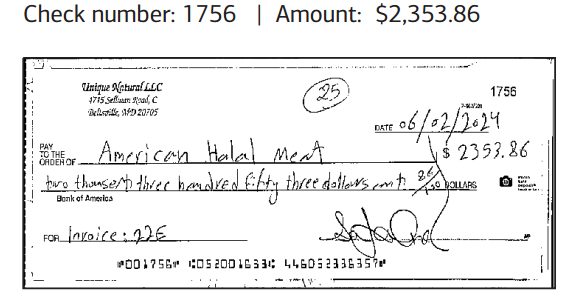 Check number: 1756 | Amount: $2,353.86
Unique Natural LLC
25
1756
4715 Sellman Road, C
Beltsville, MD 20705
DATE 06/02/2024
PAY TO THE ORDER OF American Halal Meat $ 2353.86
three hundred fifty three dollars 86/100 DOLLARS
Bank of America
FOR Invoice: 22E
⑈001756⑈ ⑆052001633⑆ 446052336357⑈